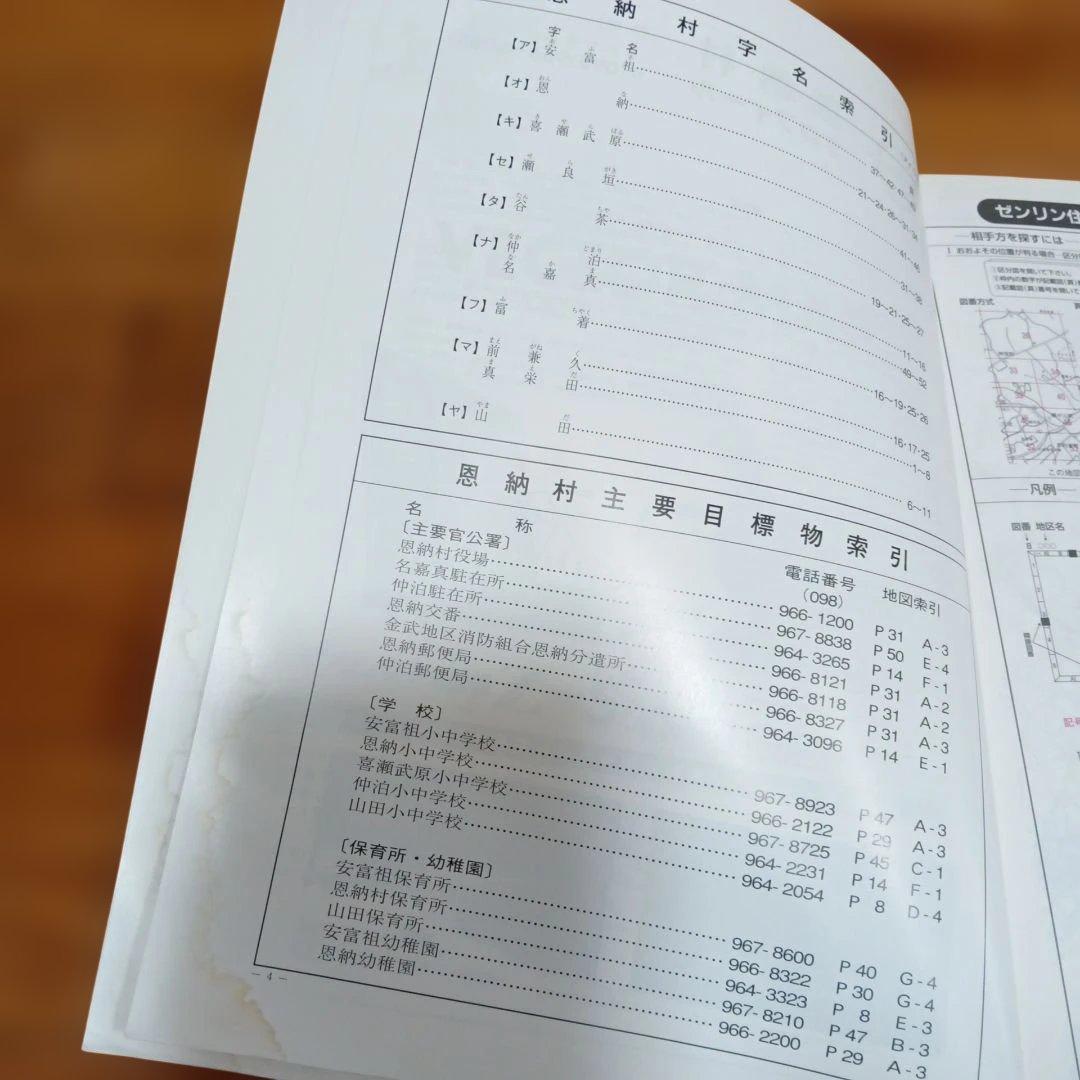 恩納村字名索引
字名
【ア】安富祖 37～42・47
【オ】恩納 21～24・26～31・34
【キ】喜瀬武原 41～46
【セ】瀬良垣 31～38
【タ】谷茶 19～21・25～27
【ナ】仲泊 11～16
名嘉真 49～52
【フ】冨着 16～19・25・26
【マ】前兼久 16・17・25
真栄田 1～8
【ヤ】山田 6～11
恩納村主要目標物索引
名称 電話番号 地図索引
(098)
〔主要官公署〕
恩納村役場 966-1200 P31 A-3
名嘉真駐在所 967-8838 P50 E-4
仲泊駐在所 964-3265 P14 F-1
恩納交番 966-8121 P31 A-2
金武地区消防組合恩納分遣所 966-8118 P31 A-2
恩納郵便局 966-8327 P31 A-3
仲泊郵便局 964-3096 P14 E-1
〔学校〕
安富祖小中学校 967-8923 P47 A-3
恩納小中学校 966-2122 P29 A-3
喜瀬武原小中学校 967-8725 P45 C-1
仲泊小中学校 964-2231 P14 F-1
山田小中学校 964-2054 P8 D-4
〔保育所・幼稚園〕
安富祖保育所 967-8600 P40 G-4
恩納村保育所 966-8322 P30 G-4
山田保育所 964-3323 P8 E-3
安富祖幼稚園 967-8210 P47 B-3
恩納幼稚園 966-2200 P29 A-3
－4－
ゼンリン住
相手方を探すには
1 おおよその位置が判る場合
①区分図を開いて下さい。
図番方式
この地図
凡例
図番 地区名
記号